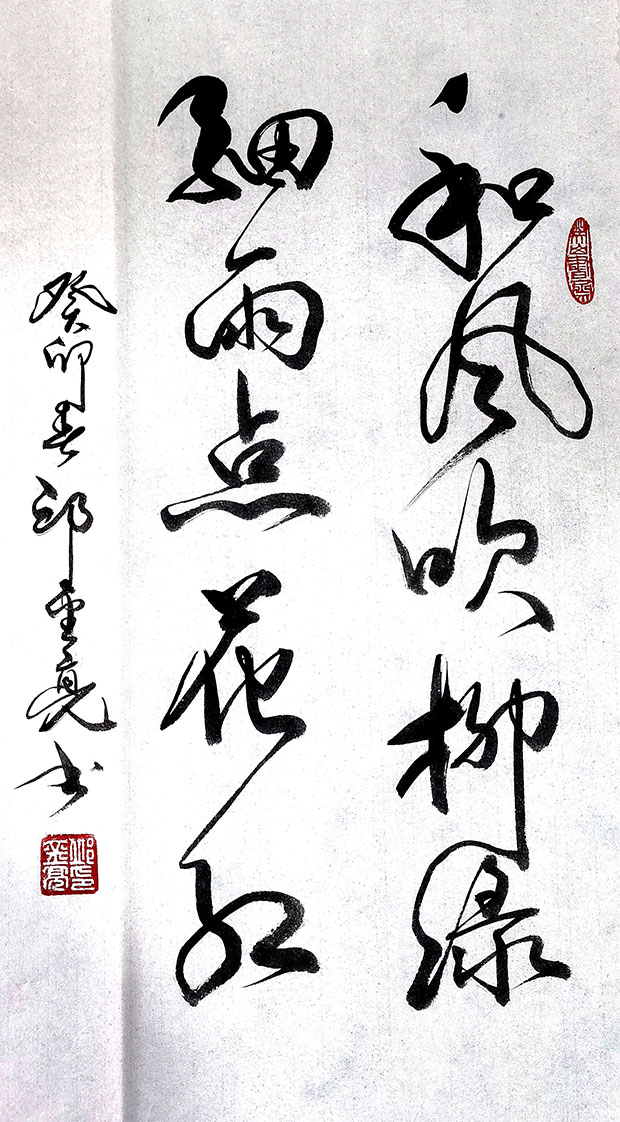 和风吹柳绿
细雨点花红
癸卯春邱重亮书